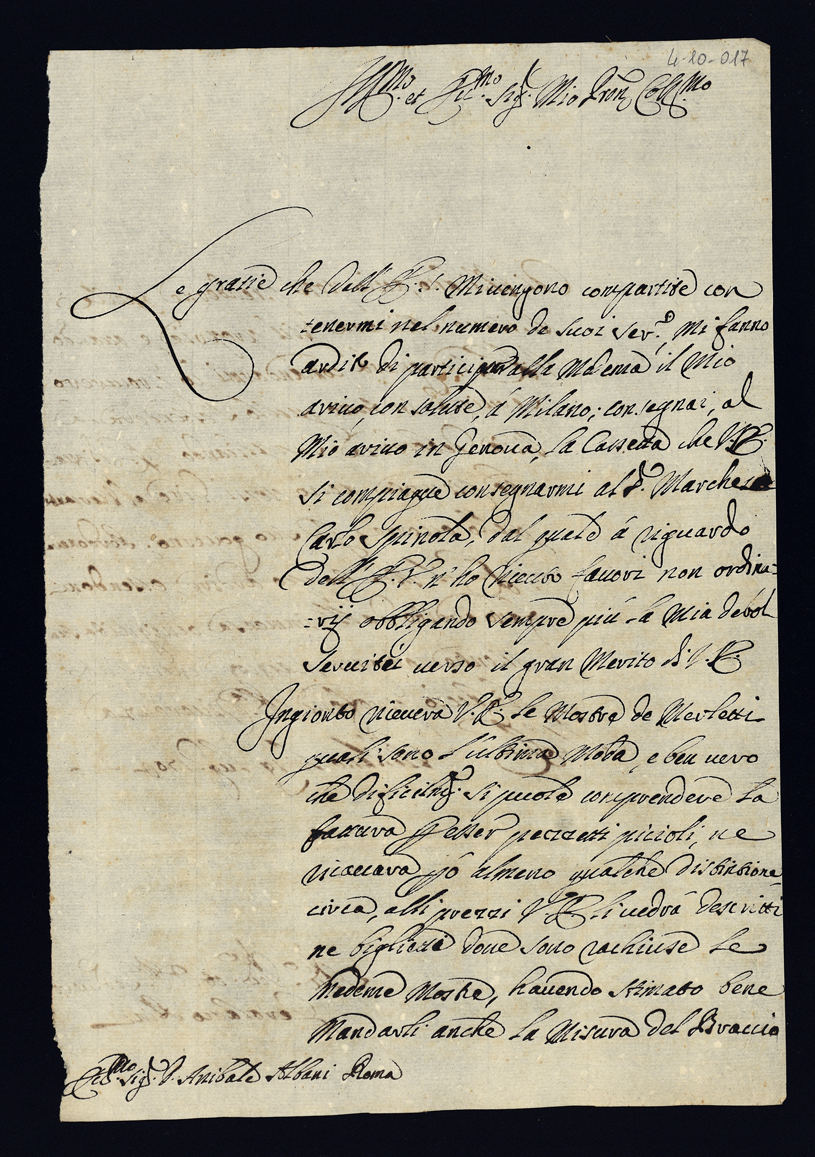 4-20-017
Ill.mo et Ecc.mo Sig.r Mio Pron Coll.mo
Le grazie che dall' E. V. Mi vengono compartite con
tenermi nel numero de suoi Ser.ri, Mi fanno
ardito di participar alla Medema il Mio
arivo con salute, à Milano; consegnai, al
Mio arivo in Genova, la Cassetta che V. E.
si compiaque consegnarmi al S.r Marchese
Carlo Spinola, dal quale à riguardo
dell' E. V. n' ho riceuto favori non ordina=
=rij obbligando sempre più la Mia devol
Servitù verso il gran Merito di V. E.
Ingionto riceverà V. E. le Mostre de Merletti
quali sono l'ultima Moda, e ben vero
che dificilm.te si puole comprendere la
fattura p esser pezzetti picioli, ne
ricaverà però almeno qualche distintione
circa, alli prezzi V. E. li vedrà descritti
ne biglietti dove sono rachiuse le
Medeme Mostre, havendo stimato bene
Mandarli anche la Misura del Braccio
Ecc.mo Sig.r D. Anibale Albani Roma